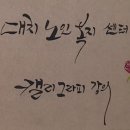 대치 노인 복지 센터
캘리그라피 강의